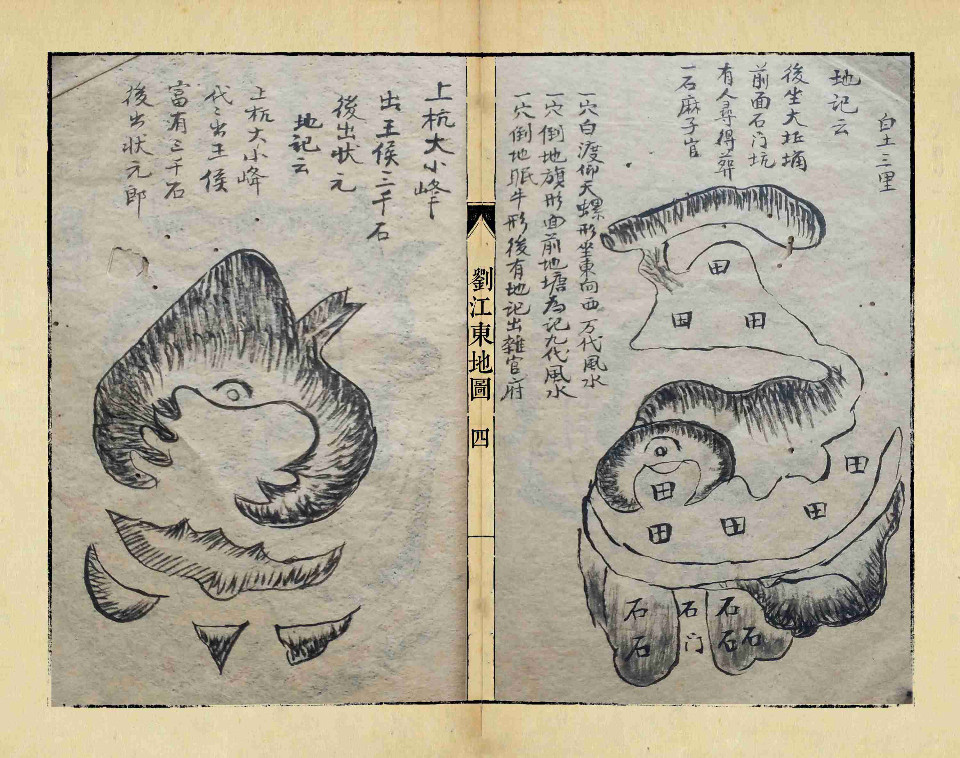 白土三里
地记云
後坐大坵埇
前面石门坑
有人尋得葬
一石麻子官
一穴白渡仰天螺形坐東向西万代風水
一穴倒地旗形面前地塘為记九代風水
一穴倒地眠牛形後有地记出雜官府
田
田 田
田 田
田 田 田
石 石 门 石
石 石 石
劉江東地圖 四
上杭大小峰
出王侯三千石
後出状元
地記云
上杭大小峰
代〻出王侯
富有三千石
後出状元郎